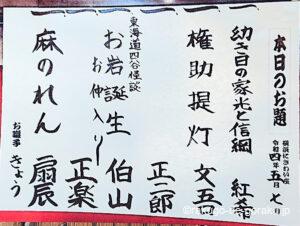 本日のお題
横浜にぎわい座
令和四年五月七日
幼き日の家光と信綱 紅希
権助提灯 文五
正二郎
東海道四谷怪談
お岩誕生 伯山
お仲入り
正楽
麻のれん 扇辰
お囃子 きょう